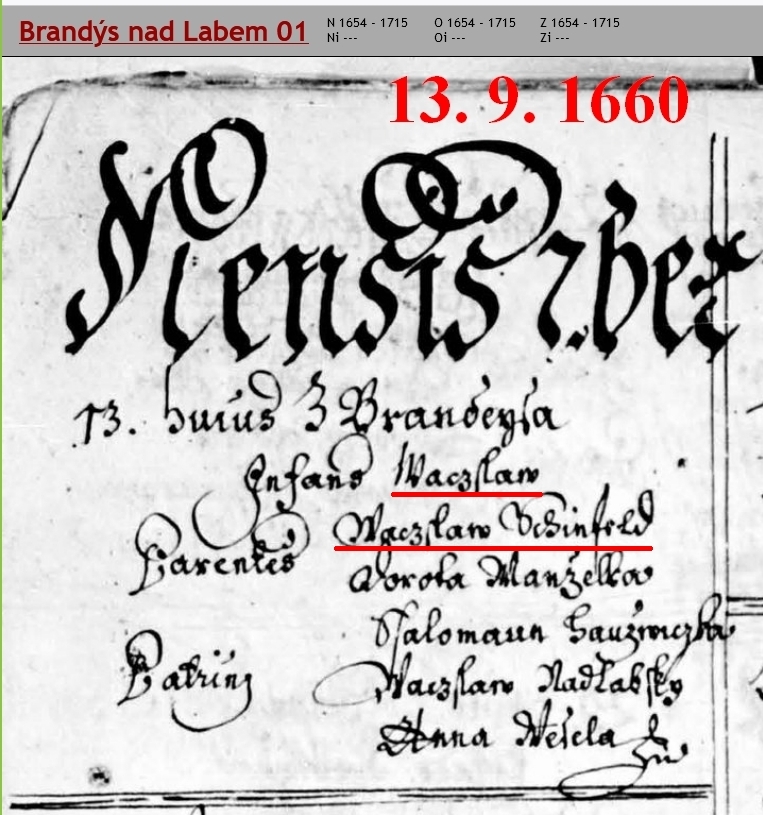 Brandýs nad Labem 01
N 1654 - 1715 O 1654 - 1715 Z 1654 - 1715
Ni --- Oi --- Zi ---
13. 9. 1660
Mensis 7.ber
13. huius Z Brandeysa
Infans Waczslaw
Parentes Waczslaw Schinfeld
Dorota Manželka
Ssalomaun
Patrini Waczslaw Nadlabsky
Anna Wesela